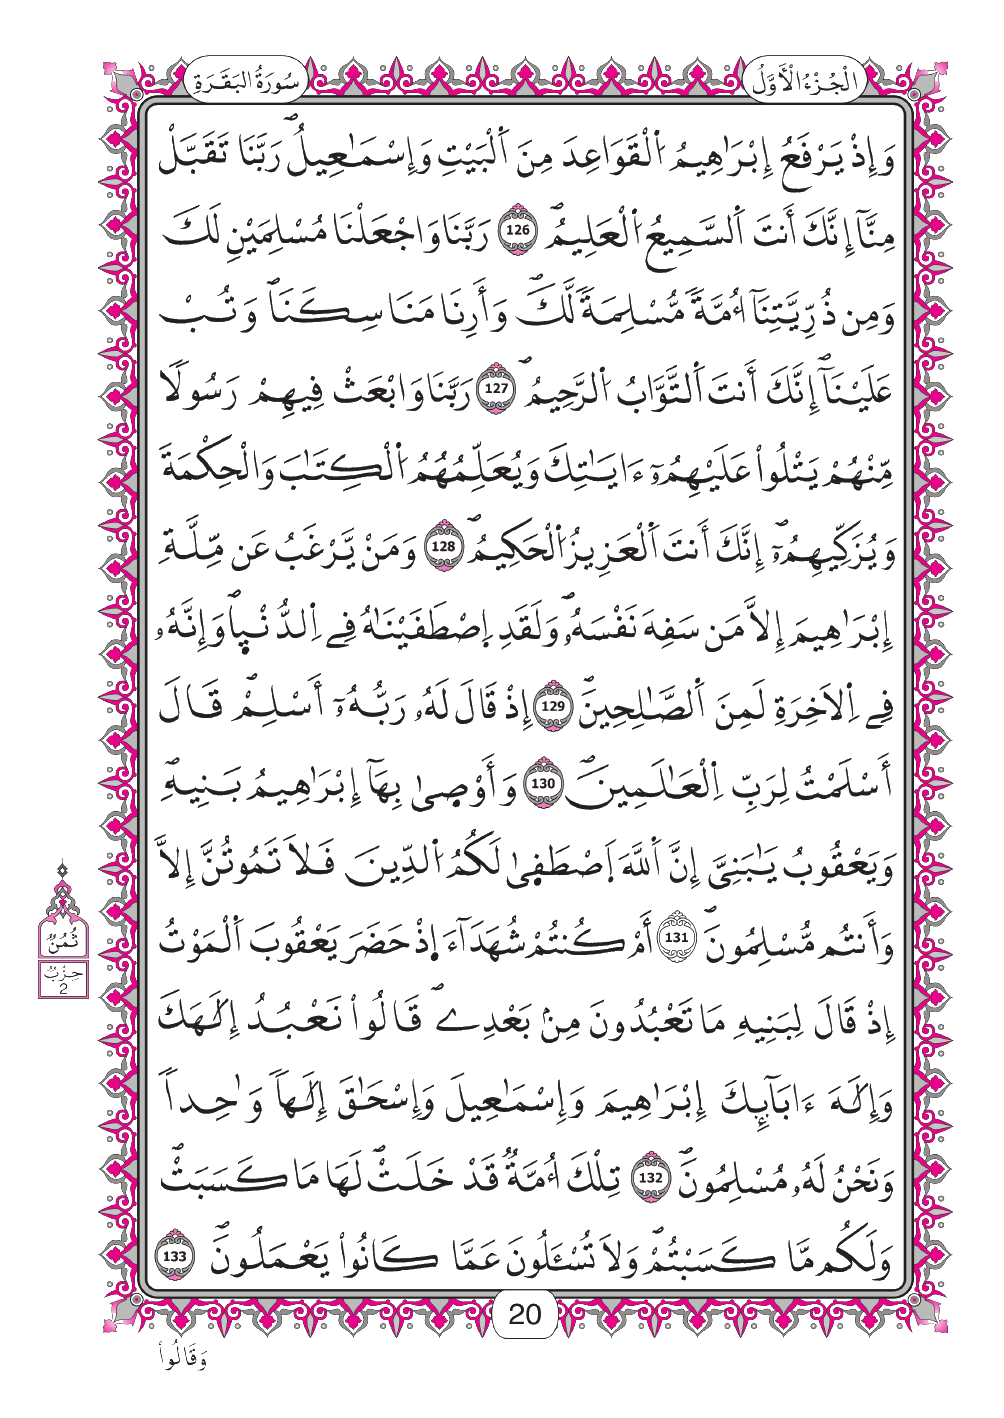 الْجُزْءُ الْأَوَّلُ
سُورَةُ الْبَقَرَةِ
وَإِذْ يَرْفَعُ إِبْرَٰهِيمُ اُ۬لْقَوَاعِدَ مِنَ اَ۬لْبَيْتِ وَإِسْمَٰعِيلُۖ رَبَّنَا تَقَبَّلْ
مِنَّآ إِنَّكَ أَنتَ اَ۬لسَّمِيعُ اُ۬لْعَلِيمُۖ 126 رَبَّنَا وَاجْعَلْنَا مُسْلِمَيْنِ لَكَ
وَمِن ذُرِّيَّتِنَآ أُمَّةٗ مُّسْلِمَةٗ لَّكَۖ وَأَرِنَا مَنَاسِكَنَاۖ وَتُبْ
عَلَيْنَآۖ إِنَّكَ أَنتَ اَ۬لتَّوَّابُ اُ۬لرَّحِيمُۖ 127 رَبَّنَا وَابْعَثْ فِيهِمْ رَسُولًا
مِّنْهُمْ يَتْلُواْ عَلَيْهِمُۥٓ ءَايَٰتِكَ وَيُعَلِّمُهُمُ اُ۬لْكِتَٰبَ وَالْحِكْمَةَ
وَيُزَكِّيهِمُۥٓۖ إِنَّكَ أَنتَ اَ۬لْعَزِيزُ اُ۬لْحَكِيمُۖ 128 وَمَنْ يَّرْغَبُ عَن مِّلَّةِ
إِبْرَٰهِيمَ إِلَّا مَن سَفِهَ نَفْسَهُۥۖ وَلَقَدِ اِ۪صْطَفَيْنَٰهُ فِے اِ۬لدُّنْي۪اۖ وَإِنَّهُۥ
فِے اِ۬لَاخِرَةِ لَمِنَ اَ۬لصَّٰلِحِينَۖ 129 إِذْ قَالَ لَهُۥ رَبُّهُۥٓ أَسْلِمْۖ قَالَ
أَسْلَمْتُ لِرَبِّ اِ۬لْعَٰلَمِينَۖ 130 وَأَوْص۪ىٰ بِهَآ إِبْرَٰهِيمُ بَنِيهِۖ
وَيَعْقُوبُ يَٰبَنِيَّ إِنَّ اَ۬للَّهَ اَ۪صْطَف۪ىٰ لَكُمُ اُ۬لدِّينَ فَلَا تَمُوتُنَّ إِلَّا
وَأَنتُم مُّسْلِمُونَۖ 131 أَمْ كُنتُمْ شُهَدَآءَ اِ۪ذْ حَضَرَ يَعْقُوبَ اَ۬لْمَوْتُ
إِذْ قَالَ لِبَنِيهِ مَا تَعْبُدُونَ مِنۢ بَعْدِےۖ قَالُواْ نَعْبُدُ إِلَٰهَكَ
وَإِلَٰهَ ءَابَآئِكَ إِبْرَٰهِيمَ وَإِسْمَٰعِيلَ وَإِسْحَٰقَ إِلَٰهاٗ وَٰحِداٗ
وَنَحْنُ لَهُۥ مُسْلِمُونَۖ 132 تِلْكَ أُمَّةٞ قَدْ خَلَتْۖ لَهَا مَا كَسَبَتْۖ
وَلَكُم مَّا كَسَبْتُمْۖ وَلَا تُسْـَٔلُونَ عَمَّا كَانُواْ يَعْمَلُونَۖ 133
ثُمُنُ
حِزْبُ
2
20
وَقَالُواْ